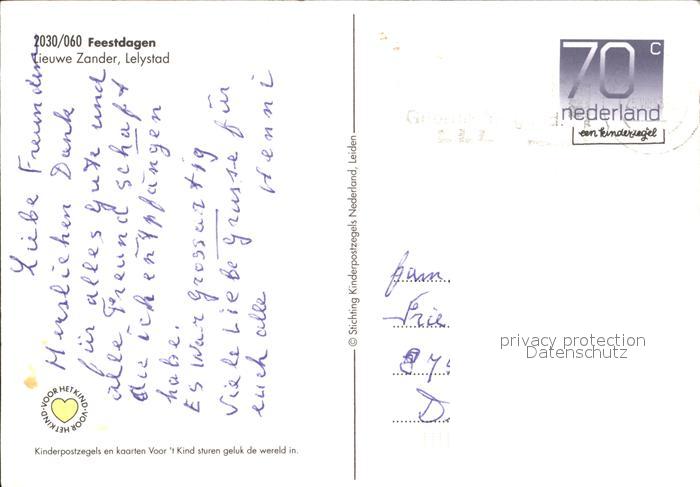 2030/060 Feestdagen
Lieuwe Zander, Lelystad
Liebe Freunden
Herslichen Dank
für alles Gute und
alle Freund schaft
die ich empfangen
habe.
Es war grossartig
Viele Liebe Grüsse für
euch alle Henni
VOOR HET KIND · VOOR HET KIND ·
Kinderpostzegels en kaarten Voor 't Kind sturen geluk de wereld in.
© Stichting Kinderpostzegels Nederland, Leiden
70 c
nederland
een kinderzegel
fam.
Frie
D
privacy protection
Datenschutz